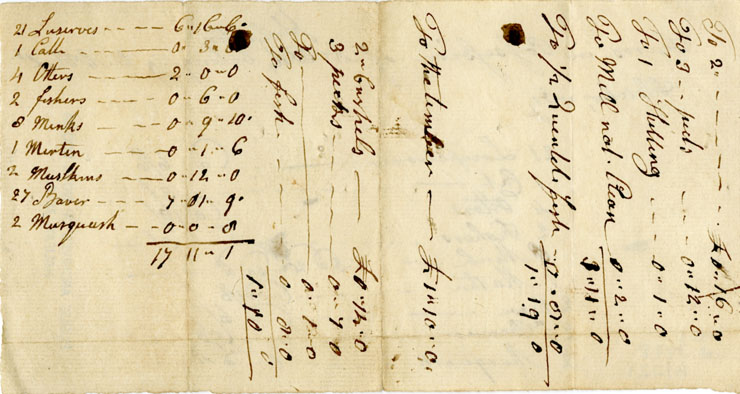 21 Luserves - - - 6 " 16 " 6
1 Catt - - - 0 " 3 " 
4 Otters - - - 2 " 0 " 0
2 fishers - - - 0 " 6 " 0
8 Minks - - - 0 " 9 " 10
1 Merten - - - 0 " 1 " 6
2 - - - 0 " 12 " 0
27 Bever - - - 7 " 01 " 9
2 Musquash - - - 0 " 0 " 8
17 11 " 1
To 2 - - - £ 0 " 16 " 0
To 3 - - - 0 " 12 " 0
To 1 - - - 0 " 1 " 0
To Mill not 0 " 2 " 0
3 " 11 " 0
To 1/2 Quental fish 0 " 8 " 0
1 " 19 " 0
To the timber - £ 1 " 10 " 0
2 " bushels - £ 0 " 12 " 0
3 pecks - - - 0 " 4 " 0
To - 0 " 1 " 0
To fish - - - 0 " 8 " 0
1 " 10 " 0